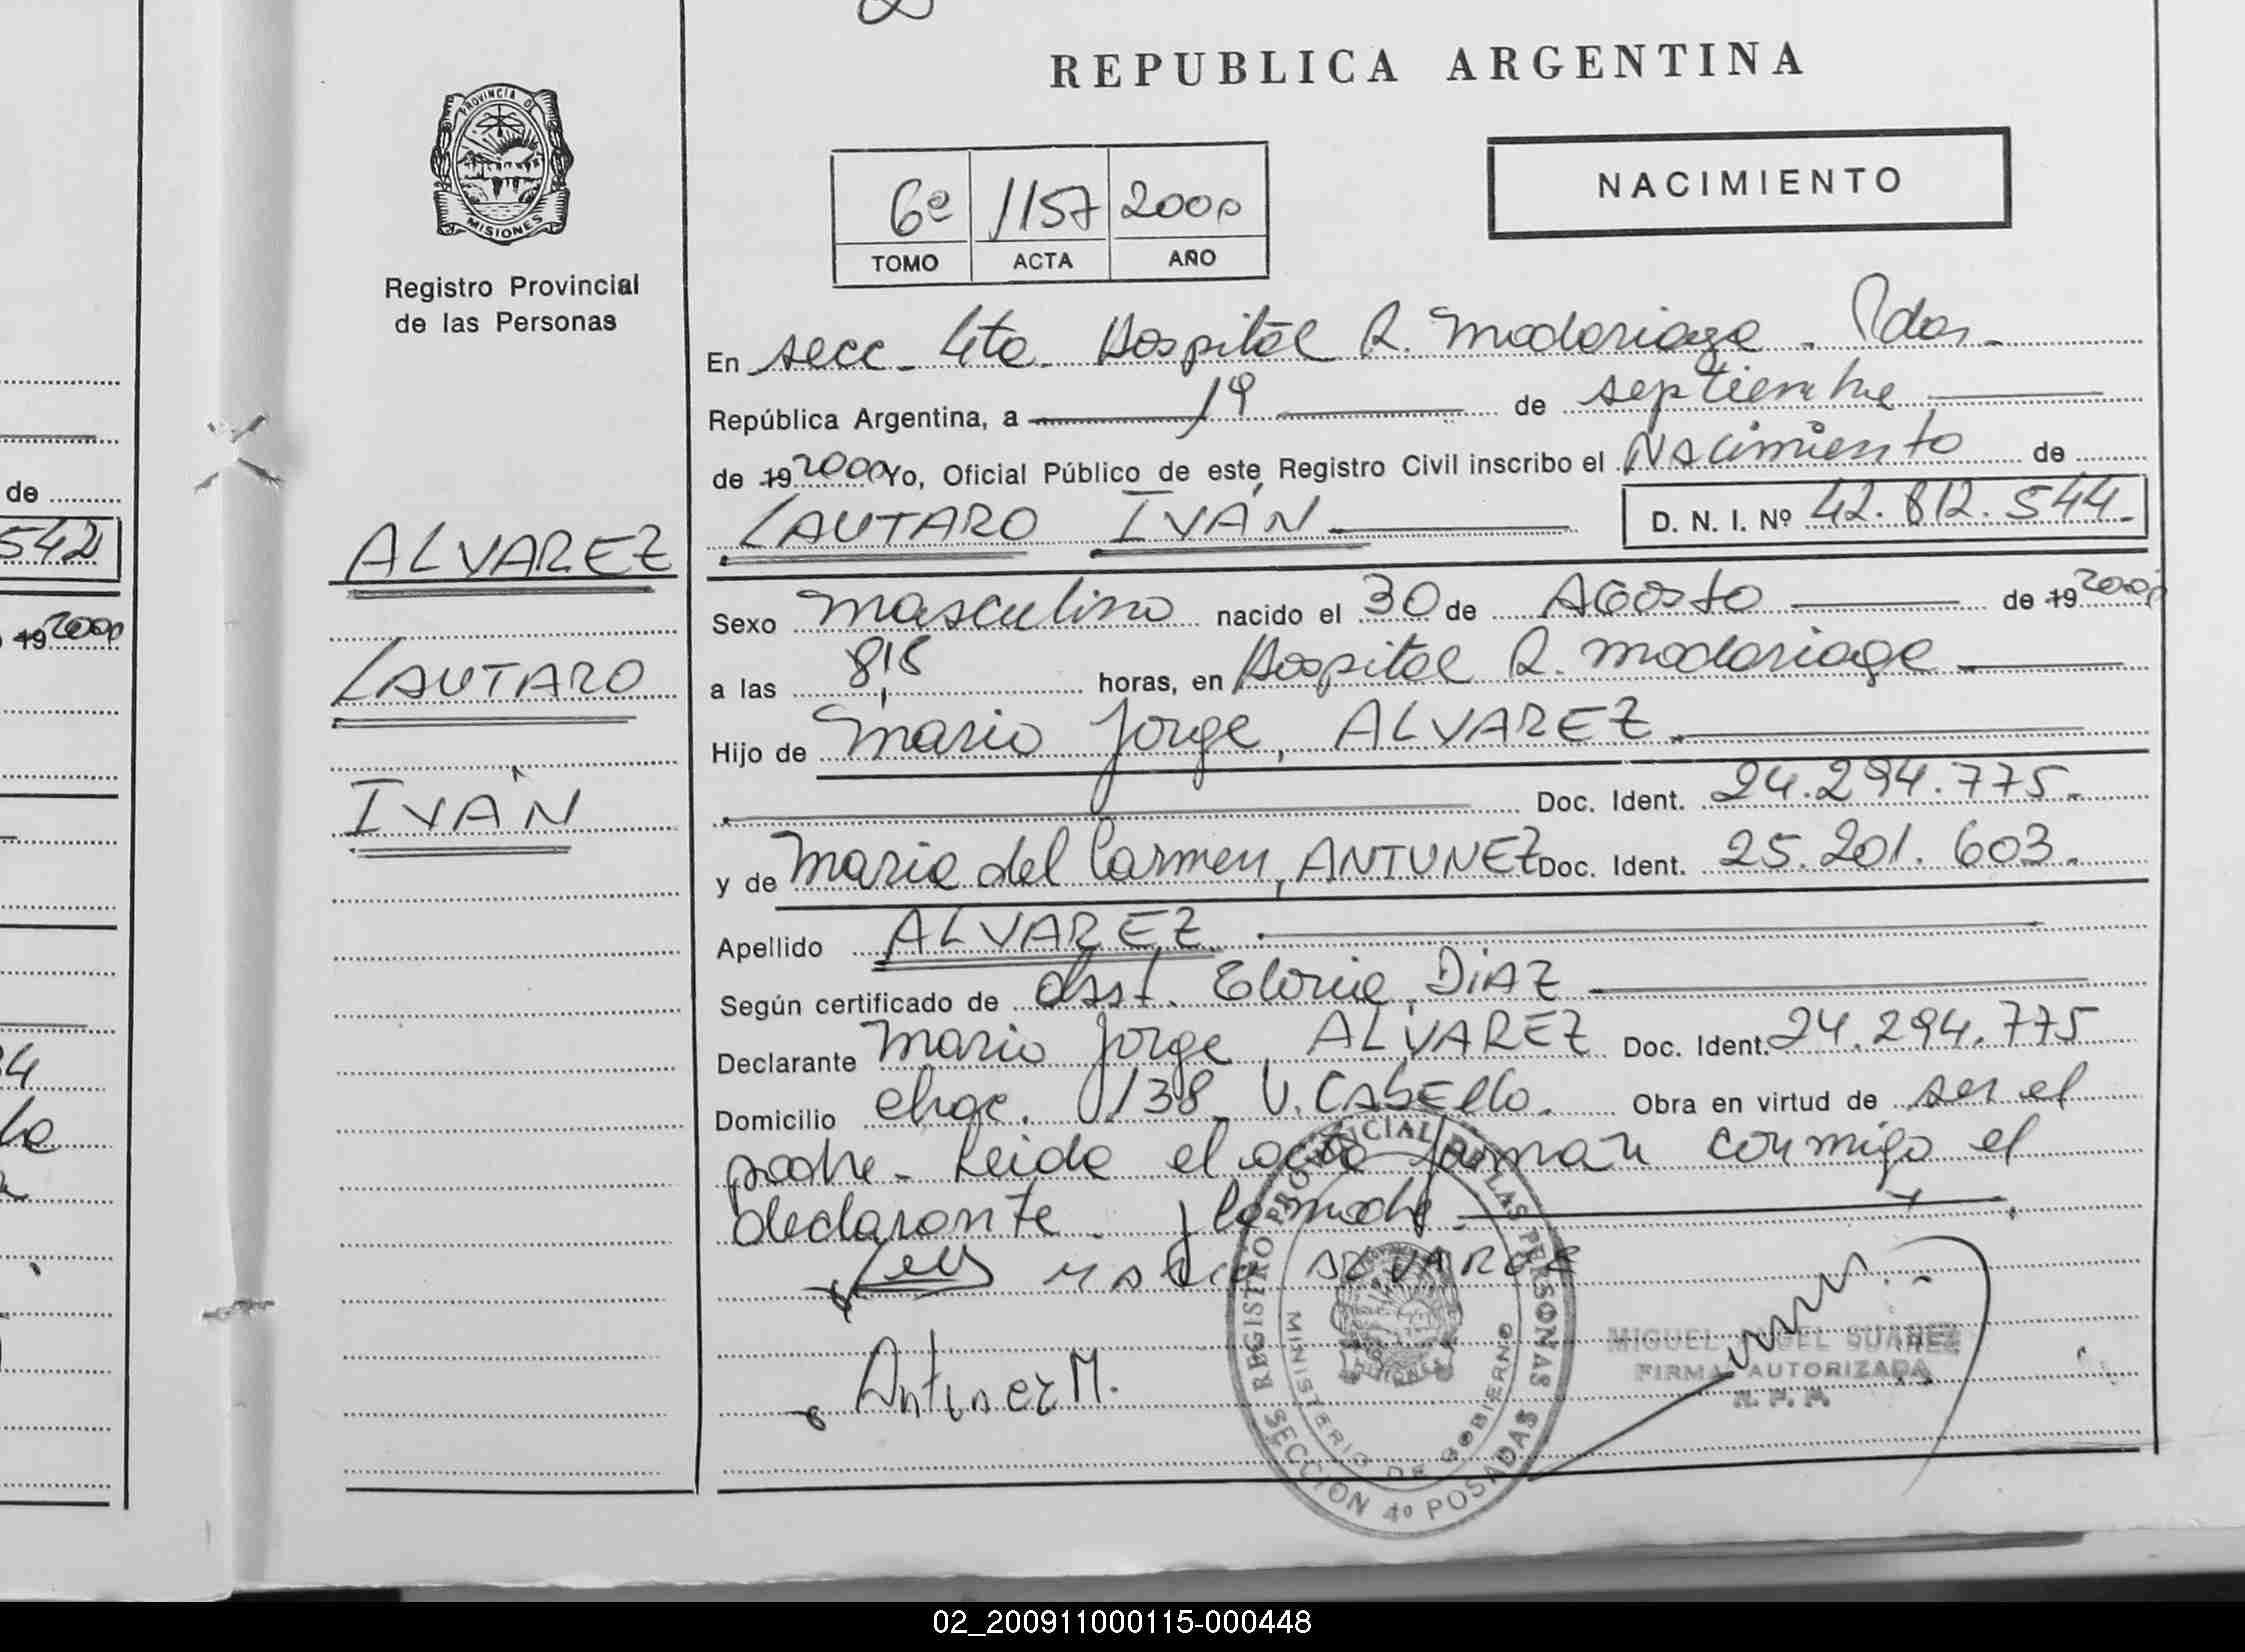 REPUBLICA ARGENTINA
PROVINCIA DE MISIONES
Registro Provincial
de las Personas
NACIMIENTO
6º 1157 2000
TOMO ACTA AÑO
En secc. 4ta. Hospital R. Madariaga. Pdas.
República Argentina, a 19 de septiembre
de 19 2000 Yo, Oficial Público de este Registro Civil inscribo el Nacimiento de
LAUTARO IVÁN D. N. I. Nº 42.812.544.
ALVAREZ
LAUTARO
IVÁN
Sexo masculino nacido el 30 de AGosto de 19 2000
a las horas, en Hospital R. Madariaga
Hijo de Mario Jorge, ALVAREZ.
Doc. Ident. 24.294.775.
y de Maria del Carmen, ANTUNEZ Doc. Ident. 25.201.603.
Apellido ALVAREZ.
Según certificado de obst. Gloria, DIAZ
Declarante Mario Jorge, ALVAREZ Doc. Ident. 24.294.775
Domicilio chac. 138. V. CABELLO. Obra en virtud de ser el
padre. Leida el acta firman conmigo el
declarante y la madre.
Antunez M.
REGISTRO PROVINCIAL DE LAS PERSONAS
MINISTERIO DE GOBIERNO
SECCION 4º POSADAS
MIGUEL ANGEL SUAREZ
FIRMA AUTORIZADA
R. P. P.
de
542
19 2000
02_200911000115-000448